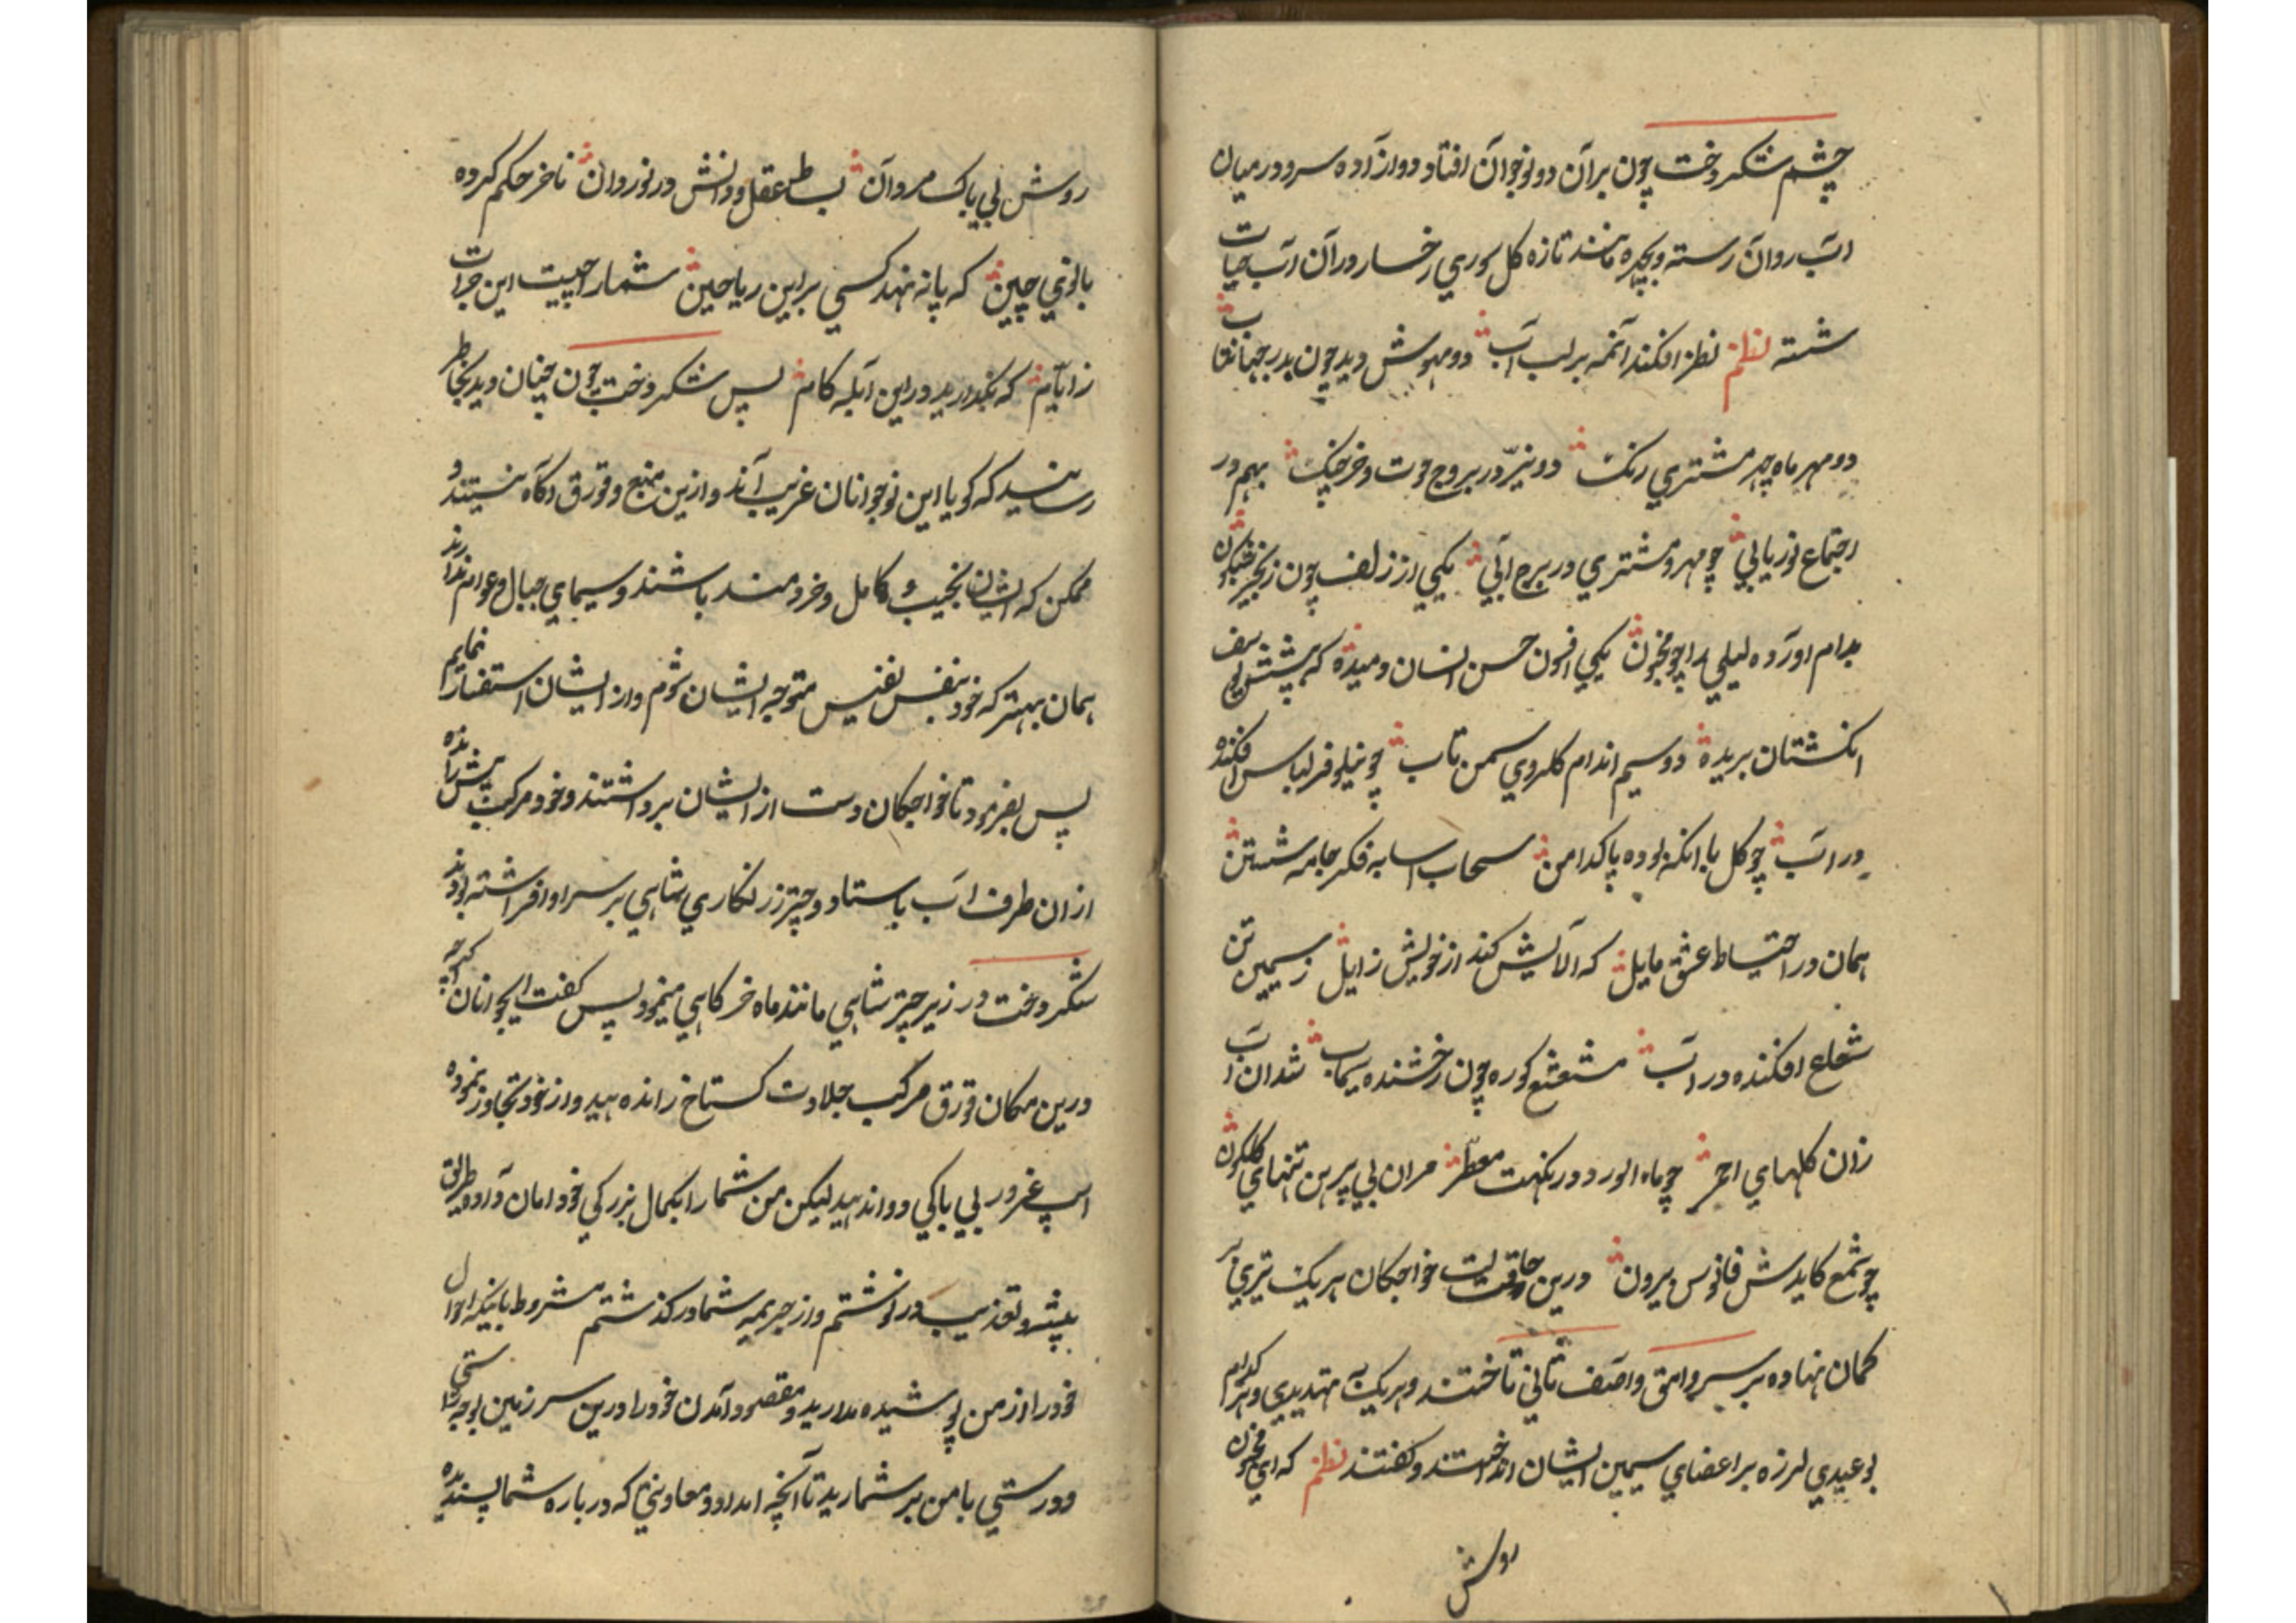 چشم شکر دخت چون بر آن دو نوجوان افتاد دو ازاده سرو در میان
اب روان رسته و بچهره مانند تازه کل سوری رخسار در آن اب حیات
شسته نظم نظر افکند آنمه بر لب آب دو مهوش دید چون بدر جهانتاب
دو مهر ماه چهر مشتری رنک دو نیّر در بروج حوت و خرچنک بهم در
اجتماع نور یابی چو مهر و مشتری در برج ابی یکی از زلف چون زنجیر شبکون
بدام اورده لیلی را چو مجنون یکی افسون حسن انسان دمیده که پیشش یوسف
انکشتان بریده دو سیم اندام کلروی سمن تاب چو نیلوفر لباس افکنده
در اب چو کل با انکه بوده پاکدامن سحاب اسا به فکر جامه شستن
همان در احتیاط عشق مایل که الایش کند از خویش زایل ز سیمین تن
شعاع افکنده در اب مشعشع کوره چون رخشنده سیماب شد ان اب
زان کلهای احمر چو ماه الورد در نکهت معطر مران بی پیرهن تنهای کلکون
چو شمع کاید ش فانوس بیرون درین وقت خواجکان هر یک تیری بر
کمان نهاده بر سر وامق و آصف ثانی تاختند و هر یک به تهدیدی و هر کدام
بوعیدی لرزه بر اعضای سیمین ایشان انداختند و کفتند نظم که ای مجنون
روش
روش بی باک مردان بساط عقل و دانش در نوردان تا خر حکم کرده
بانوی چین که پا ننهد کسی بر این ریاحین شما را چیست این جرات
ز ایام که بکذارید در این ابله کام پس شکر دخت چون چنان دید بخاطر
رسانید که کویا این نوجوانان غریب آند و ازین منهج و قورق اکاه نیستند و
ممکن که ایشان نجیب و کامل و خردمند باشند و سیمای جبال و عوام ندارند
همان بهتر که خود بنفس نفیس متوجه ایشان شوم و از ایشان استفسار نمایم
پس بفرمود تا خواجکان دست از ایشان برداشتند و خود مرکب پیش رانده
از ان طرف اب باستاد و چتر زرنکاری شاهی بر سر او افراشته بودند
شکر دخت در زیر چتر شاهی مانند ماه خرکاهی مینمود پس کفت ایجوانان کرچه
درین مکان قورق مرکب جلادت کستاخ رانده اید و از خود تجاوز نموده
اسپ غرور بی باکی دوانده اید لیکن من شما را بکمال بزرکی خود امان دادم و طریق
پیشرو تعذیب در نوشتم و از جریمه شما در کذشتم مشروط باینکه احوال
خود را از من پوشیده مدارید و مقصود آمدن خود را درین سر زمین بوجه راستی
و درستی با من بر شمارید تا آنچه امداد و معاونی که در باره شما پسندیده